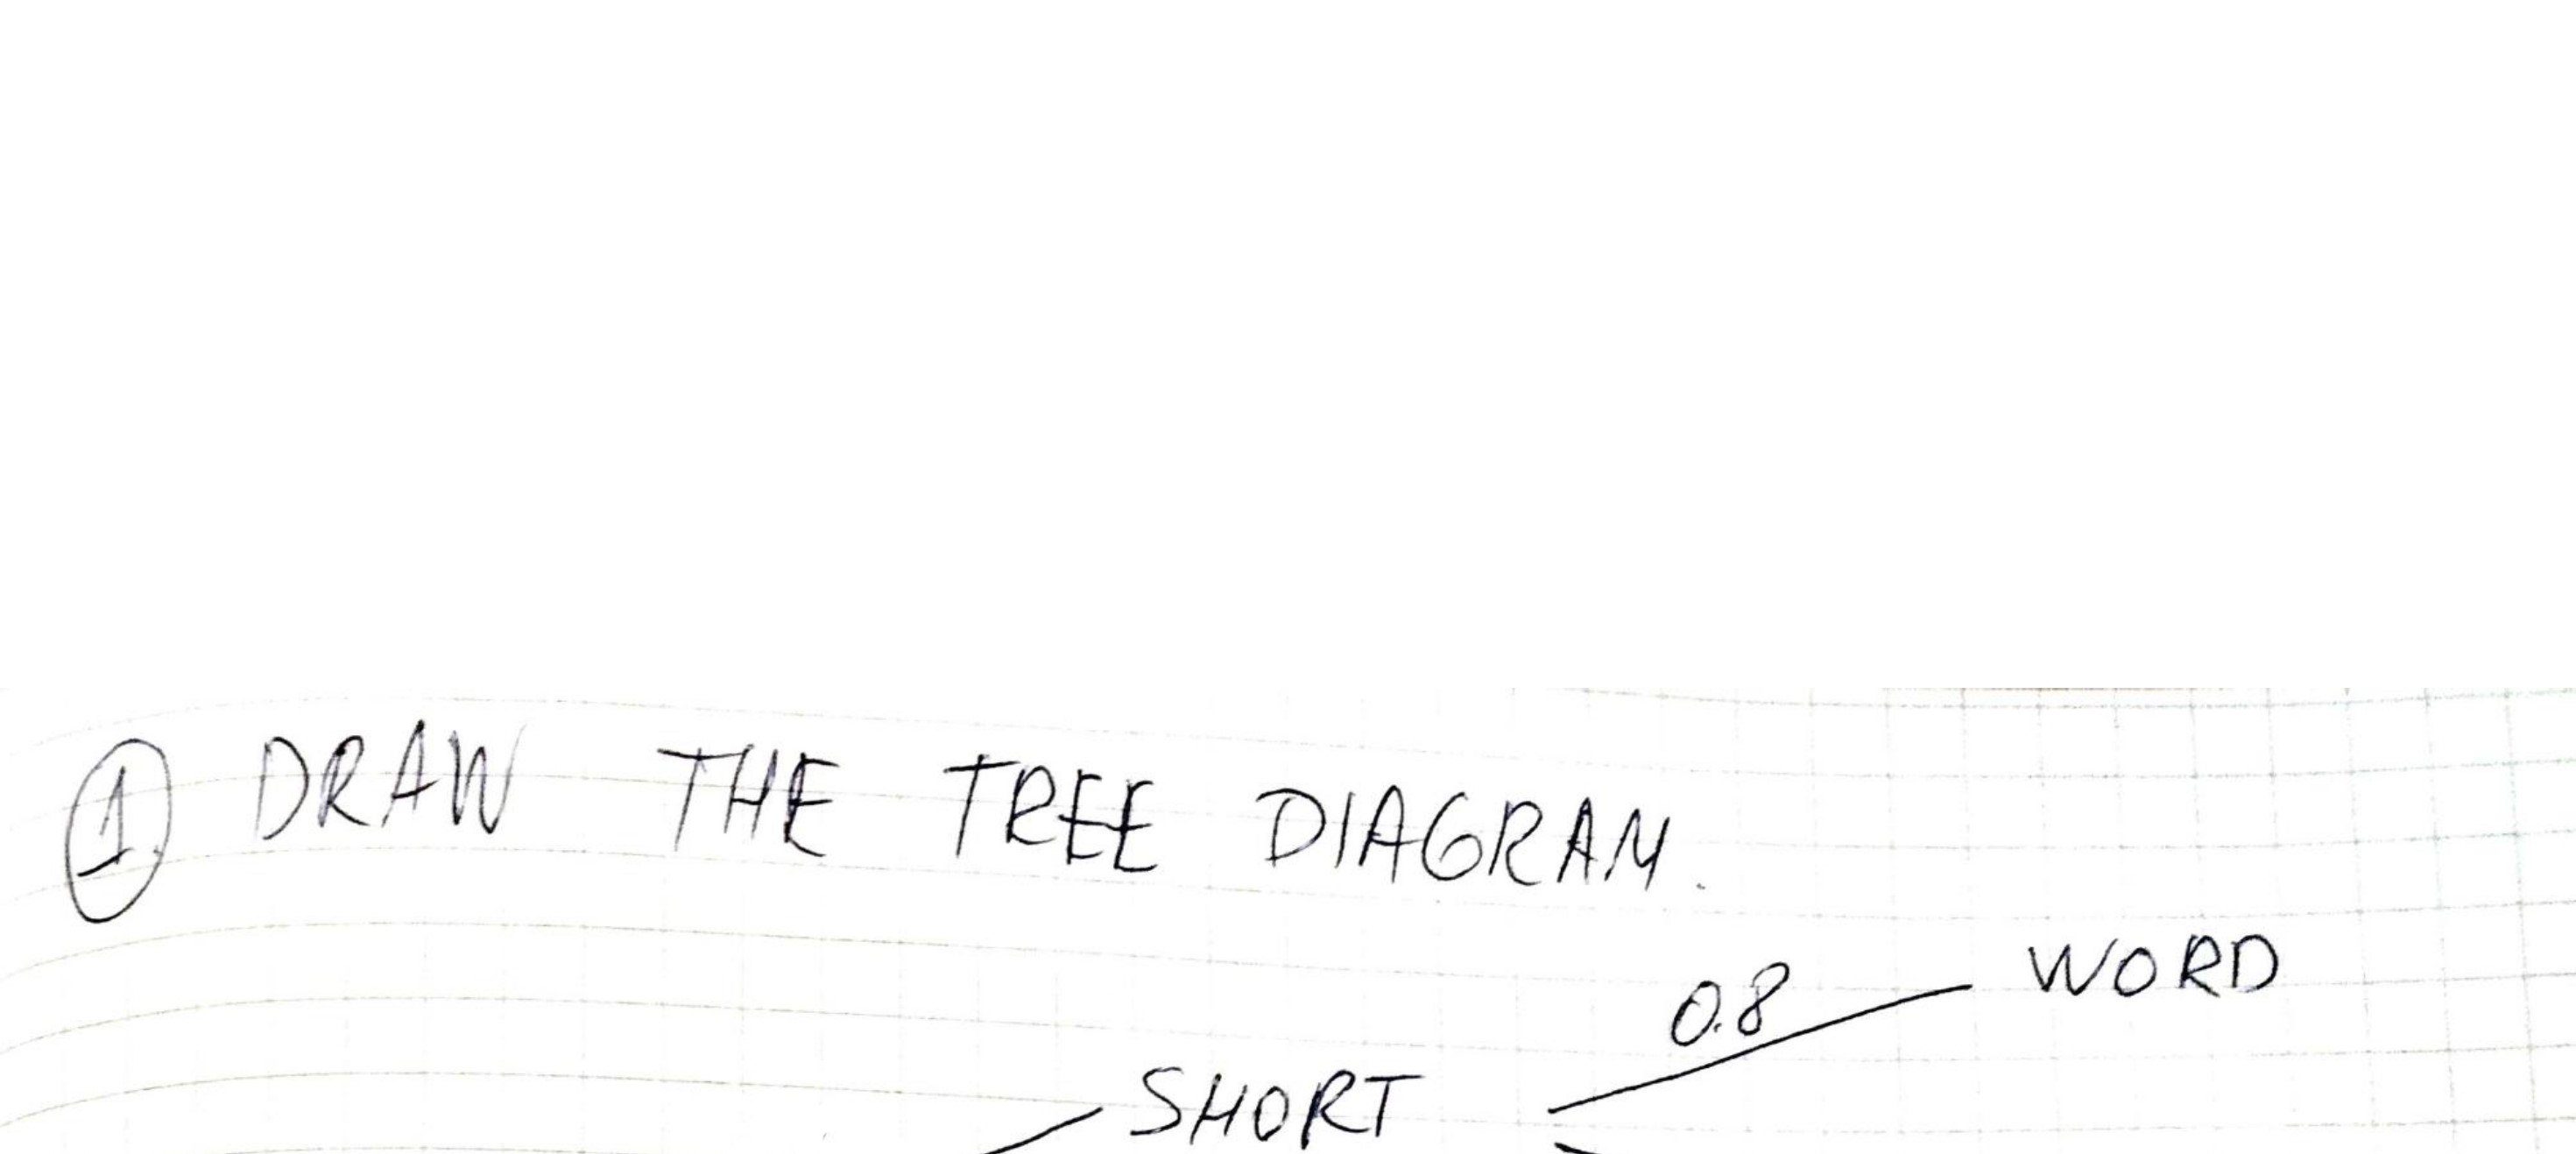 1. DRAW THE TREE DIAGRAM.
0.8 WORD
SHORT